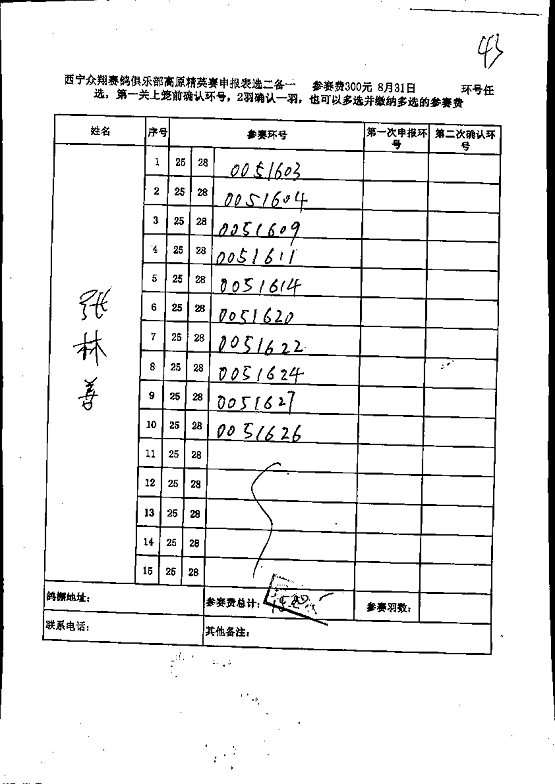 43
西宁众翔赛鸽俱乐部高原精英赛申报表选二备一 参赛费300元 8月31日 环号任
选，第一关上笼前确认环号，2羽确认一羽，也可以多选并缴纳多选的参赛费
姓名 序号 参赛环号 第一次申报环号 第二次确认环号
张林善
1 25 28 0051603
2 25 28 0051604
3 25 28 0051609
4 25 28 0051611
5 25 28 0051614
6 25 28 0051620
7 25 28 0051622
8 25 28 0051624
9 25 28 0051627
10 25 28 0051626
11 25 28
12 25 28
13 25 28
14 25 28
15 25 28
鸽棚地址： 参赛费总计： 参赛羽数：
联系电话： 其他备注：